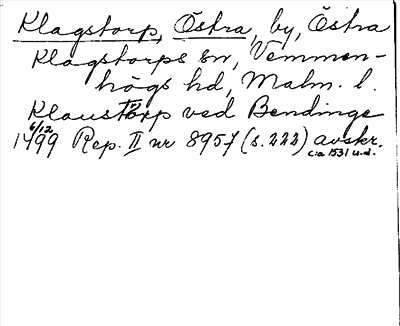 Klagstorp, Östra, by, Östra
Klagstorps sn, Vemmen-
högs hd, Malm. l.
Klaustorp ved Bendinge
6/12
1499 Rep. II nr 8957 (s. 222) avskr.
c:a 1531 u.d.